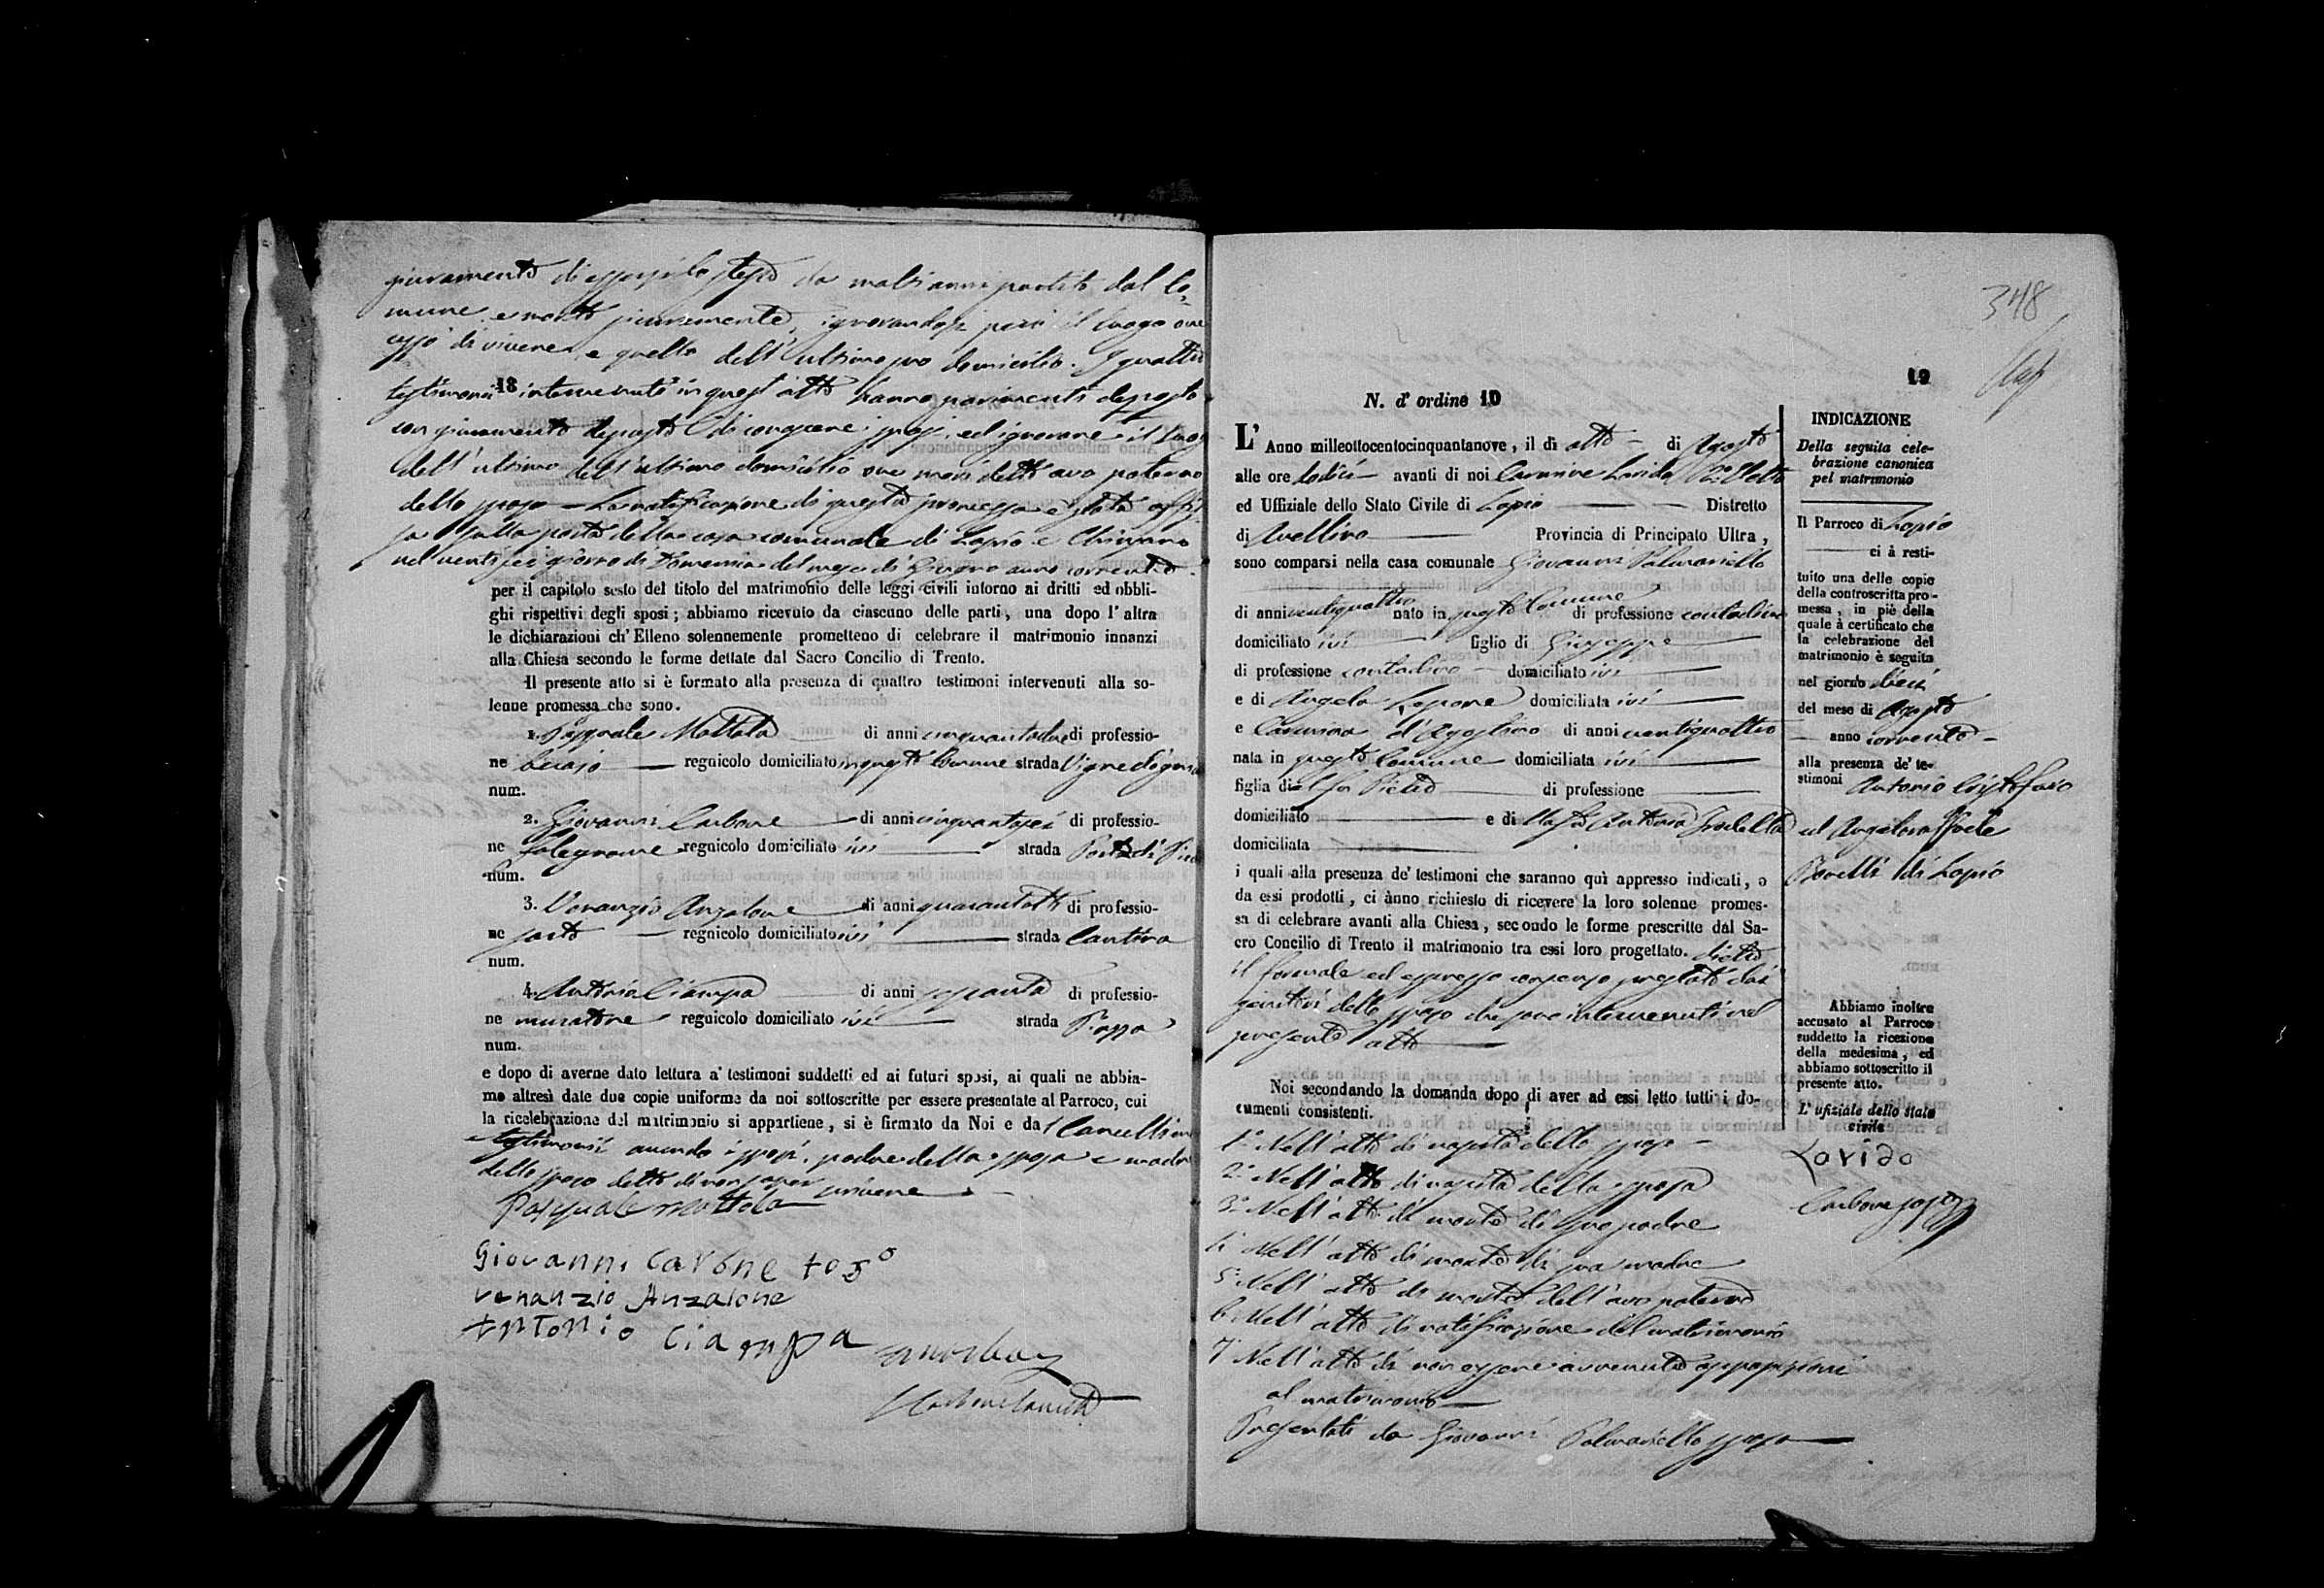 giuramento di essersi lo stesso da molti anni partito dal Co=
mune, e morto sicuramente, ignorandosi però il luogo ove
cessò di vivere, e quello dell'ultimo suo domicilio. I quattro
18
testimoni intervenuti in quest'atto hanno parimenti deposto
con giuramento deposto di conoscere i sposi, ed ignorare il luogo
dell'ultimo dell'ultimo domicilio ove morì detto avo paterno
dello sposo — La notificazione di questa promessa è stata affis
sa sulla porta della casa comunale di Lapio e Chiusano
nel ventisei giorno di Domenica del mese di Giugno anno corrente.
per il capitolo sesto del titolo del matrimonio delle leggi civili intorno ai dritti ed obbli-
ghi rispettivi degli sposi; abbiamo ricevuto da ciascuno delle parti, una dopo l'altra
le dichiarazioni ch'Elleno solennemente prometteno di celebrare il matrimonio innanzi
alla Chiesa secondo le forme dettate dal Sacro Concilio di Trento.
Il presente atto si è formato alla presenza di quattro testimoni intervenuti alla so-
lenne promessa che sono.
1. Pasquale Mottola di anni cinquantadue di professio-
ne beccajo regnicolo domiciliato in questo Comune strada
num.
2. Giovanni Carbone di anni cinquantasei di professio-
ne falegname regnicolo domiciliato ivi strada
num.
3. Venanzio Anzalone di anni quarantotto di professio-
ne sarto regnicolo domiciliato ivi strada Cantina
num.
4. Antonio Ciampa di anni sessanta di professio-
ne muratore regnicolo domiciliato ivi strada Piazza
num.
e dopo di averne dato lettura a' testimoni suddetti ed ai futuri sposi, ai quali ne abbia-
mo altresì date due copie uniforme da noi sottoscritte per essere presentate al Parroco, cui
la ricelebrazione del matrimonio si appartiene, si è firmato da Noi e dal Cancelliere
e testimonii avendo i sposi, padre della sposa e madre
dello sposo detto di non saper scrivere
Pasquale Mottola
Giovanni Carbone tes°
venanzio Anzalone
Antonio Ciampa
348
19
N. d'ordine 10
L'Anno milleottocentocinquantanove, il dì otto di Agosto
alle ore dodici avanti di noi Carmine Lavida 2° Eletto
ed Uffiziale dello Stato Civile di Lapio Distretto
di Avellino Provincia di Principato Ultra,
sono comparsi nella casa comunale Giovanni Palmariello
di anni ventiquattro nato in questo Comune di professione contadino
domiciliato ivi figlio di Giuseppe
di professione contadino domiciliato ivi
e di Angela Lepore domiciliata ivi
e Carmina d'Agostino di anni ventiquattro
nata in questo Comune domiciliata ivi
figlia di l fu Pietro di professione
domiciliato e di lla fu Antonia
domiciliata
i quali alla presenza de' testimoni che saranno quì appresso indicati, o
da essi prodotti, ci ànno richiesto di ricevere la loro solenne promes-
sa di celebrare avanti alla Chiesa, secondo le forme prescritte dal Sa-
cro Concilio di Trento il matrimonio tra essi loro progettato. dietro
il formale ed espresso consenso prestato dai
genitori dello sposo che sono intervenuti nel
presente atto
Noi secondando la domanda dopo di aver ad essi letto tutti i do-
cumenti consistenti.
1° Nell'atto di nascita dello sposo
2° Nell'atto di nascita della sposa
3° Nell'atto di morte di suo padre
4° Nell'atto di morte di sua madre
5° Nell'atto di morte dell'avo paterno
6 Nell'atto di notificazione del matrimonio
7° Nell'atto di non essere avvenuta opposizione
al matrimonio
Presentati da Giovanni Palmariello sposo
INDICAZIONE
Della seguita cele-
brazione canonica
pel matrimonio
Il Parroco di Lapio
ci à resti-
tuito una delle copie
della controscritta pro-
messa, in piè della
quale à certificato che
la celebrazione del
matrimonio è seguita
nel giorno dieci
del mese di Agosto
anno corrente
alla presenza de' te-
stimoni Antonio Cristofaro
ed Angelaraffaele
di Lapio
Abbiamo inoltre
accusato al Parroco
suddetto la ricezione
della medesima, ed
abbiamo sottoscritto il
presente atto.
L'ufiziale dello stato
civile
Lavida